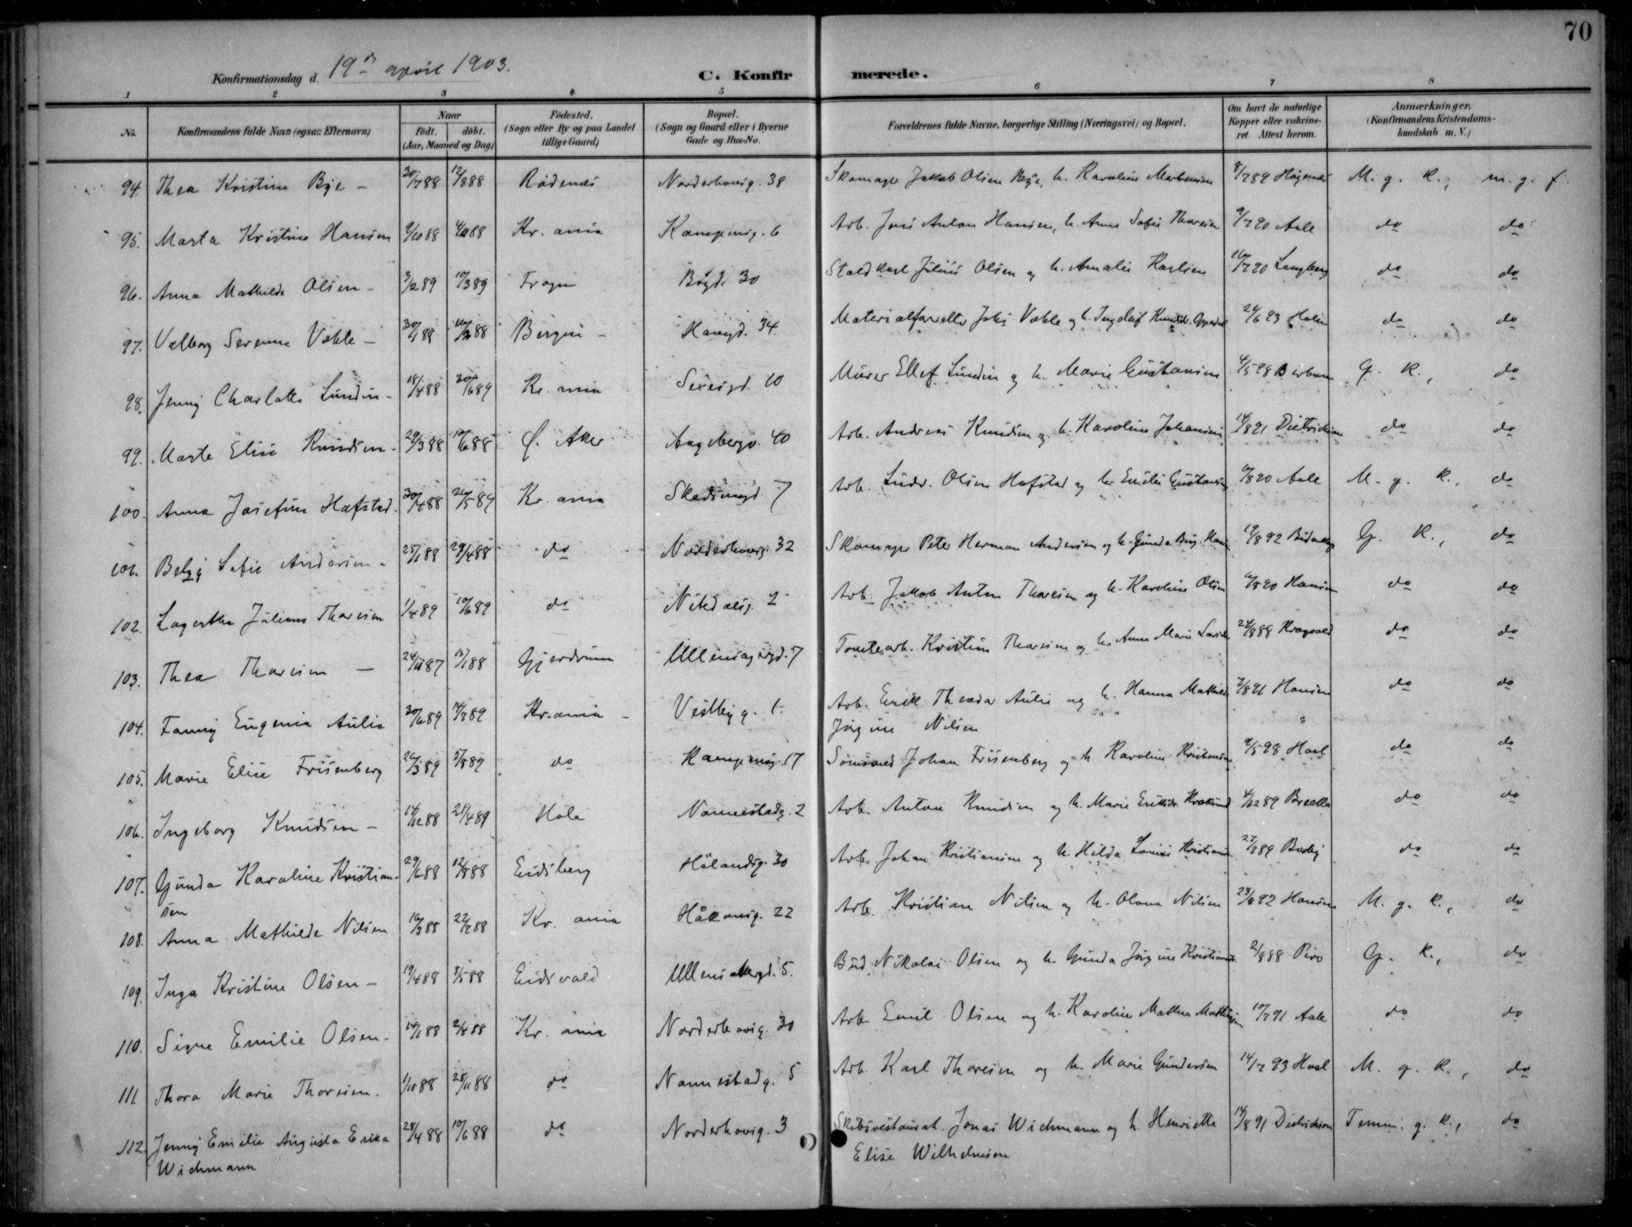 70
Konfirmationsdag d. 19de april 1903.
C. Konfirmerede.
1 2 3 4 5 6 7 8
No. Konfirmandens fulde Navn (ogsaa Efternavn) Naar født. døbt. (Aar, Maaned og Dag) Fødested. (Sogn eller By og paa Landet tillige Gaard) Bopæl. (Sogn og Gaard eller i Byerne Gade og Hus-No. Forældrenes fulde Navne, borgerlige Stilling (Næringsvei) og Bopæl. Om havt de naturlige Kopper eller vakcineret. Attest herom. Anmærkninger. (Konfirmandens Kristendomskundskab m. V.)
94 Thea Kristine Bye – 30/7 88 12/8 88 Rødenæs Norderhovsg. 38 Skomager Jakob Olsen Bye, h. Karoline Mortensen 8/7 89 Høyenæs M. g. K., m. g. f.
95. Marta Kristine Hansen 9/10 88 88 Kr.ania Kampensg. 6 Arb. Jens Anton Hansen, h. Anna Sofie Thoresen 9/7 90 Aale do do
96. Anna Mathilde Olsen – 3/2 89 10/3 89 Frogn Bøgd. 30 Staldkarl Julius Olsen og h. Amalie Karlsen 90 Langberg do do
97. Valborg Serenne Væhle – 88 88 Bergen – Havegd. 34 Materialforvalter Væhle og h. Ingeleif 24/6 93 Holm do do
98. Jenny Charlotte Lundin – 18/8 88 89 Kr. ania Sexesgd. 10 Murer Ellef Lundin og h. Marie Gustavsen 4/5 98 G. K., do
99. Marte Elise Knudsen – 29/3 88 10/6 88 Ø. Aker Aagebergv. 40 Arb. Andreas Knudsen og h. Karoline Johansen 14/8 91 Dietrichson do do
100. Anna Josefine Hafstad. 30/4 88 26/5 89 Kr. ania Skedsmogd 7 Arb. Ludv. Olsen Hafstad og h. Emilie Gustavsen 6/8 90 Aale M. g. K., do
101. Betzy Sofie Andersen – 25/1 88 29/4 88 do Norderhovsg. 32 Skomager Peter Herman Andersen og h. Gunda 19/8 92 G. K., do
102. Lagertha Juliane Thoresen 1/4 89 10/6 89 do Nitedalsg. 2 Arb. Jakob Anton Thoresen og h. Karoline Olsen 6/8 90 Hansen do do
103. Thea Thoresen — 24/11 87 15/1 88 Gjerdrum Ullensagergd. 7 Tomtearb. Kristian Thoresen og h. Anne Marie 24/8 88 Kragvold do do
104. Fanny Eugenia Aulie 30/6 89 89 Kr.ania – Vestbyg. 1. Arb. Erik Theodor Aulie og h. Hanna Mathilde Jørgine Nilsen 7/8 91 Hansen do do
105. Marie Elise Frisenberg 26/3 89 5/8 89 do Kampensg. 17 Sømand Johan Frisenberg og h. Karoline Kristensen 9/5 98 Hoel do do
106. Ingeborg Knudsen – 14/12 88 21/4 89 Hole Nannestadg. 2 Arb. Anton Knudsen og h. Marie 4/12 89 do do
107. Gunda Karoline Kristiansen 29/6 88 12/8 88 Eidsberg Hølandsg. 30 Arb. Johan Kristiansen og h. Hilda Lovise Kristiansen 27/2 89 do do
108. Anna Mathilde Nilsen 16/3 88 22/7 88 Kr. ania Håkonsg. 22 Arb. Kristian Nilsen og h. Olava Nilsen 23/6 92 Hansen M. g. K., do
109. Inga Kristine Olsen – 19/4 88 5/5 88 Eidsvold Ullensakergd. 5. Bud Nikolai Olsen og h. Gunda Jørgine Kristiansen 2/8 88 Piro G. K., do
110. Signe Emilie Olsen – 14/1 88 2/4 88 Kr. ania Norderhovsg. 30 Arb. Emil Olsen og h. Karoline Mathea 10/7 91 Aale do do
111. Thora Marie Thoresen. 1/10 88 25/11 88 do Nannestadg. 5 Arb. Karl Thoresen og h. Marie Gundersen 14/7 93 Hoel M. g. K., do
112. Jenny Emilie Augusta Erika Wichmann 28/4 88 10/6 88 do Norderhovsg. 3 Jonas Wichmann og h. Henriette Elise Wilhelmsen 14/8 91 Dietrichson Temm. g. K., do